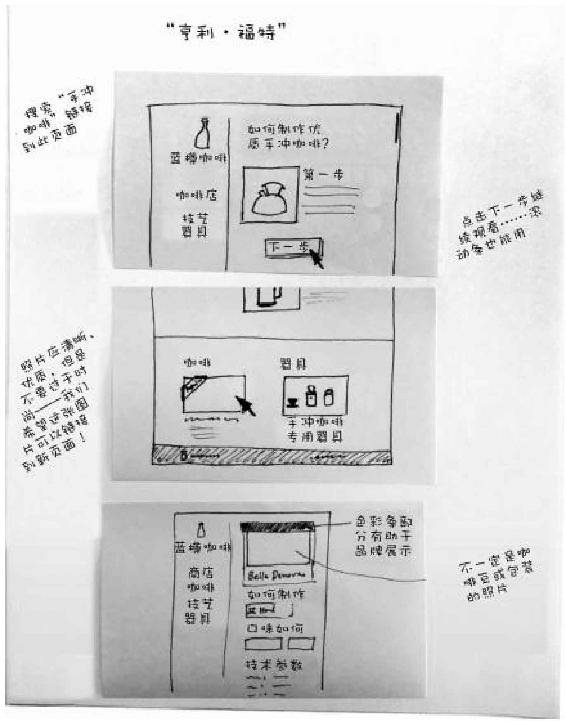 “亨利·福特”
搜索“手冲
咖啡”链接
到此页面
蓝樽咖啡
咖啡店
技艺
器具
如何制作优
质手冲咖啡?
第一步
下一步
点击下一步继
续观看……滚
动条也能用
照片应清晰、
优质,但是
不要过于时
尚——我们
希望这张图
片可以链接
到新页面!
咖啡
器具
手冲咖啡
专用器具
蓝樽咖啡
商店
咖啡
技艺
器具
Bella Donovan
如何制作
口味如何
技术参数
色彩条部
分有助于
品牌展示
不一定是咖
啡豆或包装
的照片